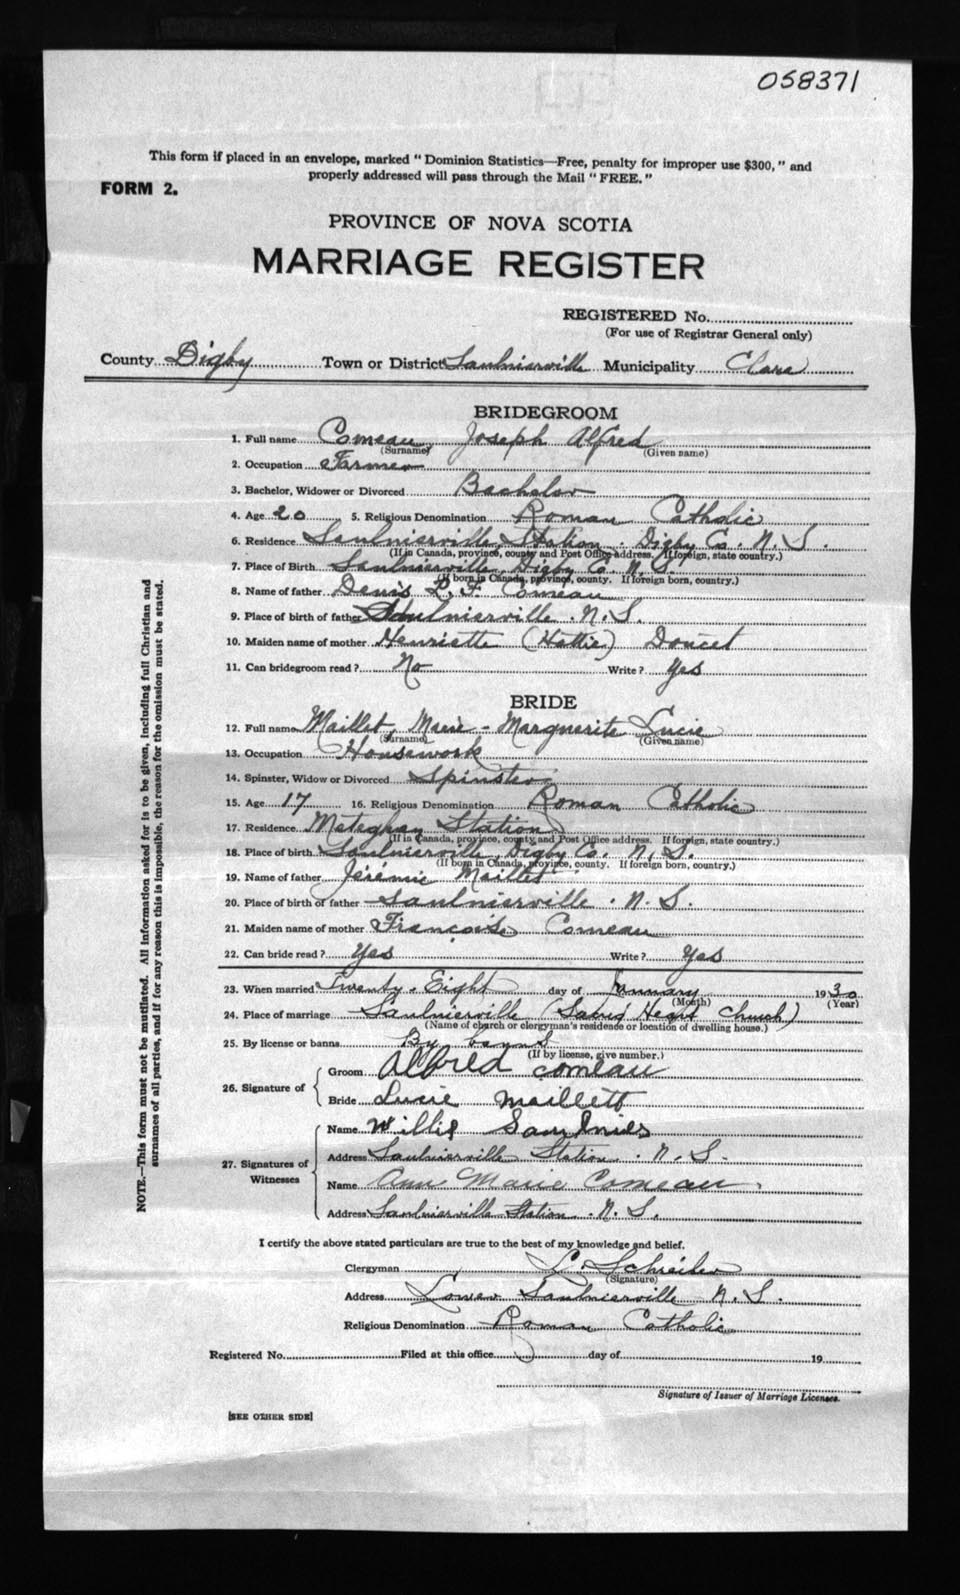 058371
This form if placed in an envelope, marked "Dominion Statistics—Free, penalty for improper use $300," and
properly addressed will pass through the Mail "FREE."
FORM 2.
PROVINCE OF NOVA SCOTIA
MARRIAGE REGISTER
REGISTERED No.
(For use of Registrar General only)
County Digby Town or District Saulnierville Municipality Clare
BRIDEGROOM
1. Full name Comeau, Joseph Alfred
(Surname) (Given name)
2. Occupation Farmer
3. Bachelor, Widower or Divorced Bachelor
4. Age 20 5. Religious Denomination Roman Catholic
6. Residence Saulnierville Station. Digby Co. N. S.
(If in Canada, province, county and Post Office address. If foreign, state country.)
7. Place of Birth Saulnierville, Digby Co. N. S.
(If born in Canada, province, county. If foreign born, country.)
8. Name of father Denis R. F. Comeau
9. Place of birth of father Saulnierville. N. S.
10. Maiden name of mother Henriette (Hattie) Doucet
11. Can bridegroom read? No Write? Yes
BRIDE
12. Full name Maillet, Marie-Marguerite Lucie
(Surname) (Given name)
13. Occupation Housework
14. Spinster, Widow or Divorced Spinster
15. Age 17 16. Religious Denomination Roman Catholic
17. Residence Meteghan Station
(If in Canada, province, county and Post Office address. If foreign, state country.)
18. Place of birth Saulnierville, Digby Co. N. S.
(If born in Canada, province, county. If foreign born, country.)
19. Name of father Jérémie Maillet
20. Place of birth of father Saulnierville. N. S.
21. Maiden name of mother Françoise Comeau
22. Can bride read? Yes Write? Yes
23. When married Twenty-Eight day of January 1930
(Month) (Year)
24. Place of marriage Saulnierville (Sacred Heart Church)
(Name of church or clergyman's residence or location of dwelling house.)
25. By license or banns By banns
(If by license, give number.)
26. Signature of
Groom Alfred Comeau
Bride Lucie Maillett
27. Signatures of Witnesses
Name Willie Saulnies
Address Saulnierville Station. N. S.
Name Ann Marie Comeau.
Address Saulnierville Station. N. S.
I certify the above stated particulars are true to the best of my knowledge and belief.
Clergyman Schreiber
(Signature)
Address Lower Saulnierville N. S.
Religious Denomination Roman Catholic
Registered No. Filed at this office day of 19
Signature of Issuer of Marriage Licenses.
[SEE OTHER SIDE]
NOTE.—This form must not be mutilated. All information asked for is to be given, including full Christian and
surnames of all parties, and if for any reason this is impossible, the reason for the omission must be stated.